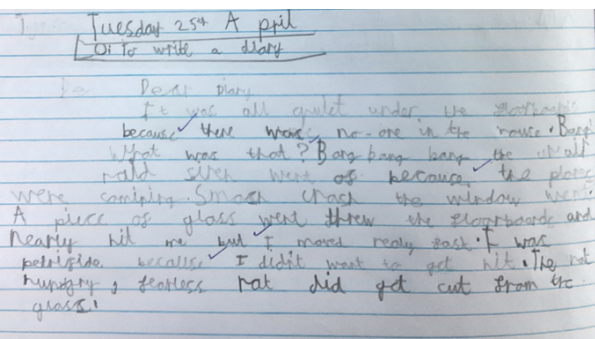 Tuesday 25th A pril
Oi To write a diary
Dear Diary
It was all quiet under the floorboards
because there was no-one in the house. Bang!
What was that? Bang bang bang the
raid siren went of because the planes
were comiping. Smash crash the window went.
A piece of glass went threw the floorboards and
nearly hit me but I moved realy fast. I was
because I didn't want to get hit. The not
hungry, fearless rat did get cut from the
glass.